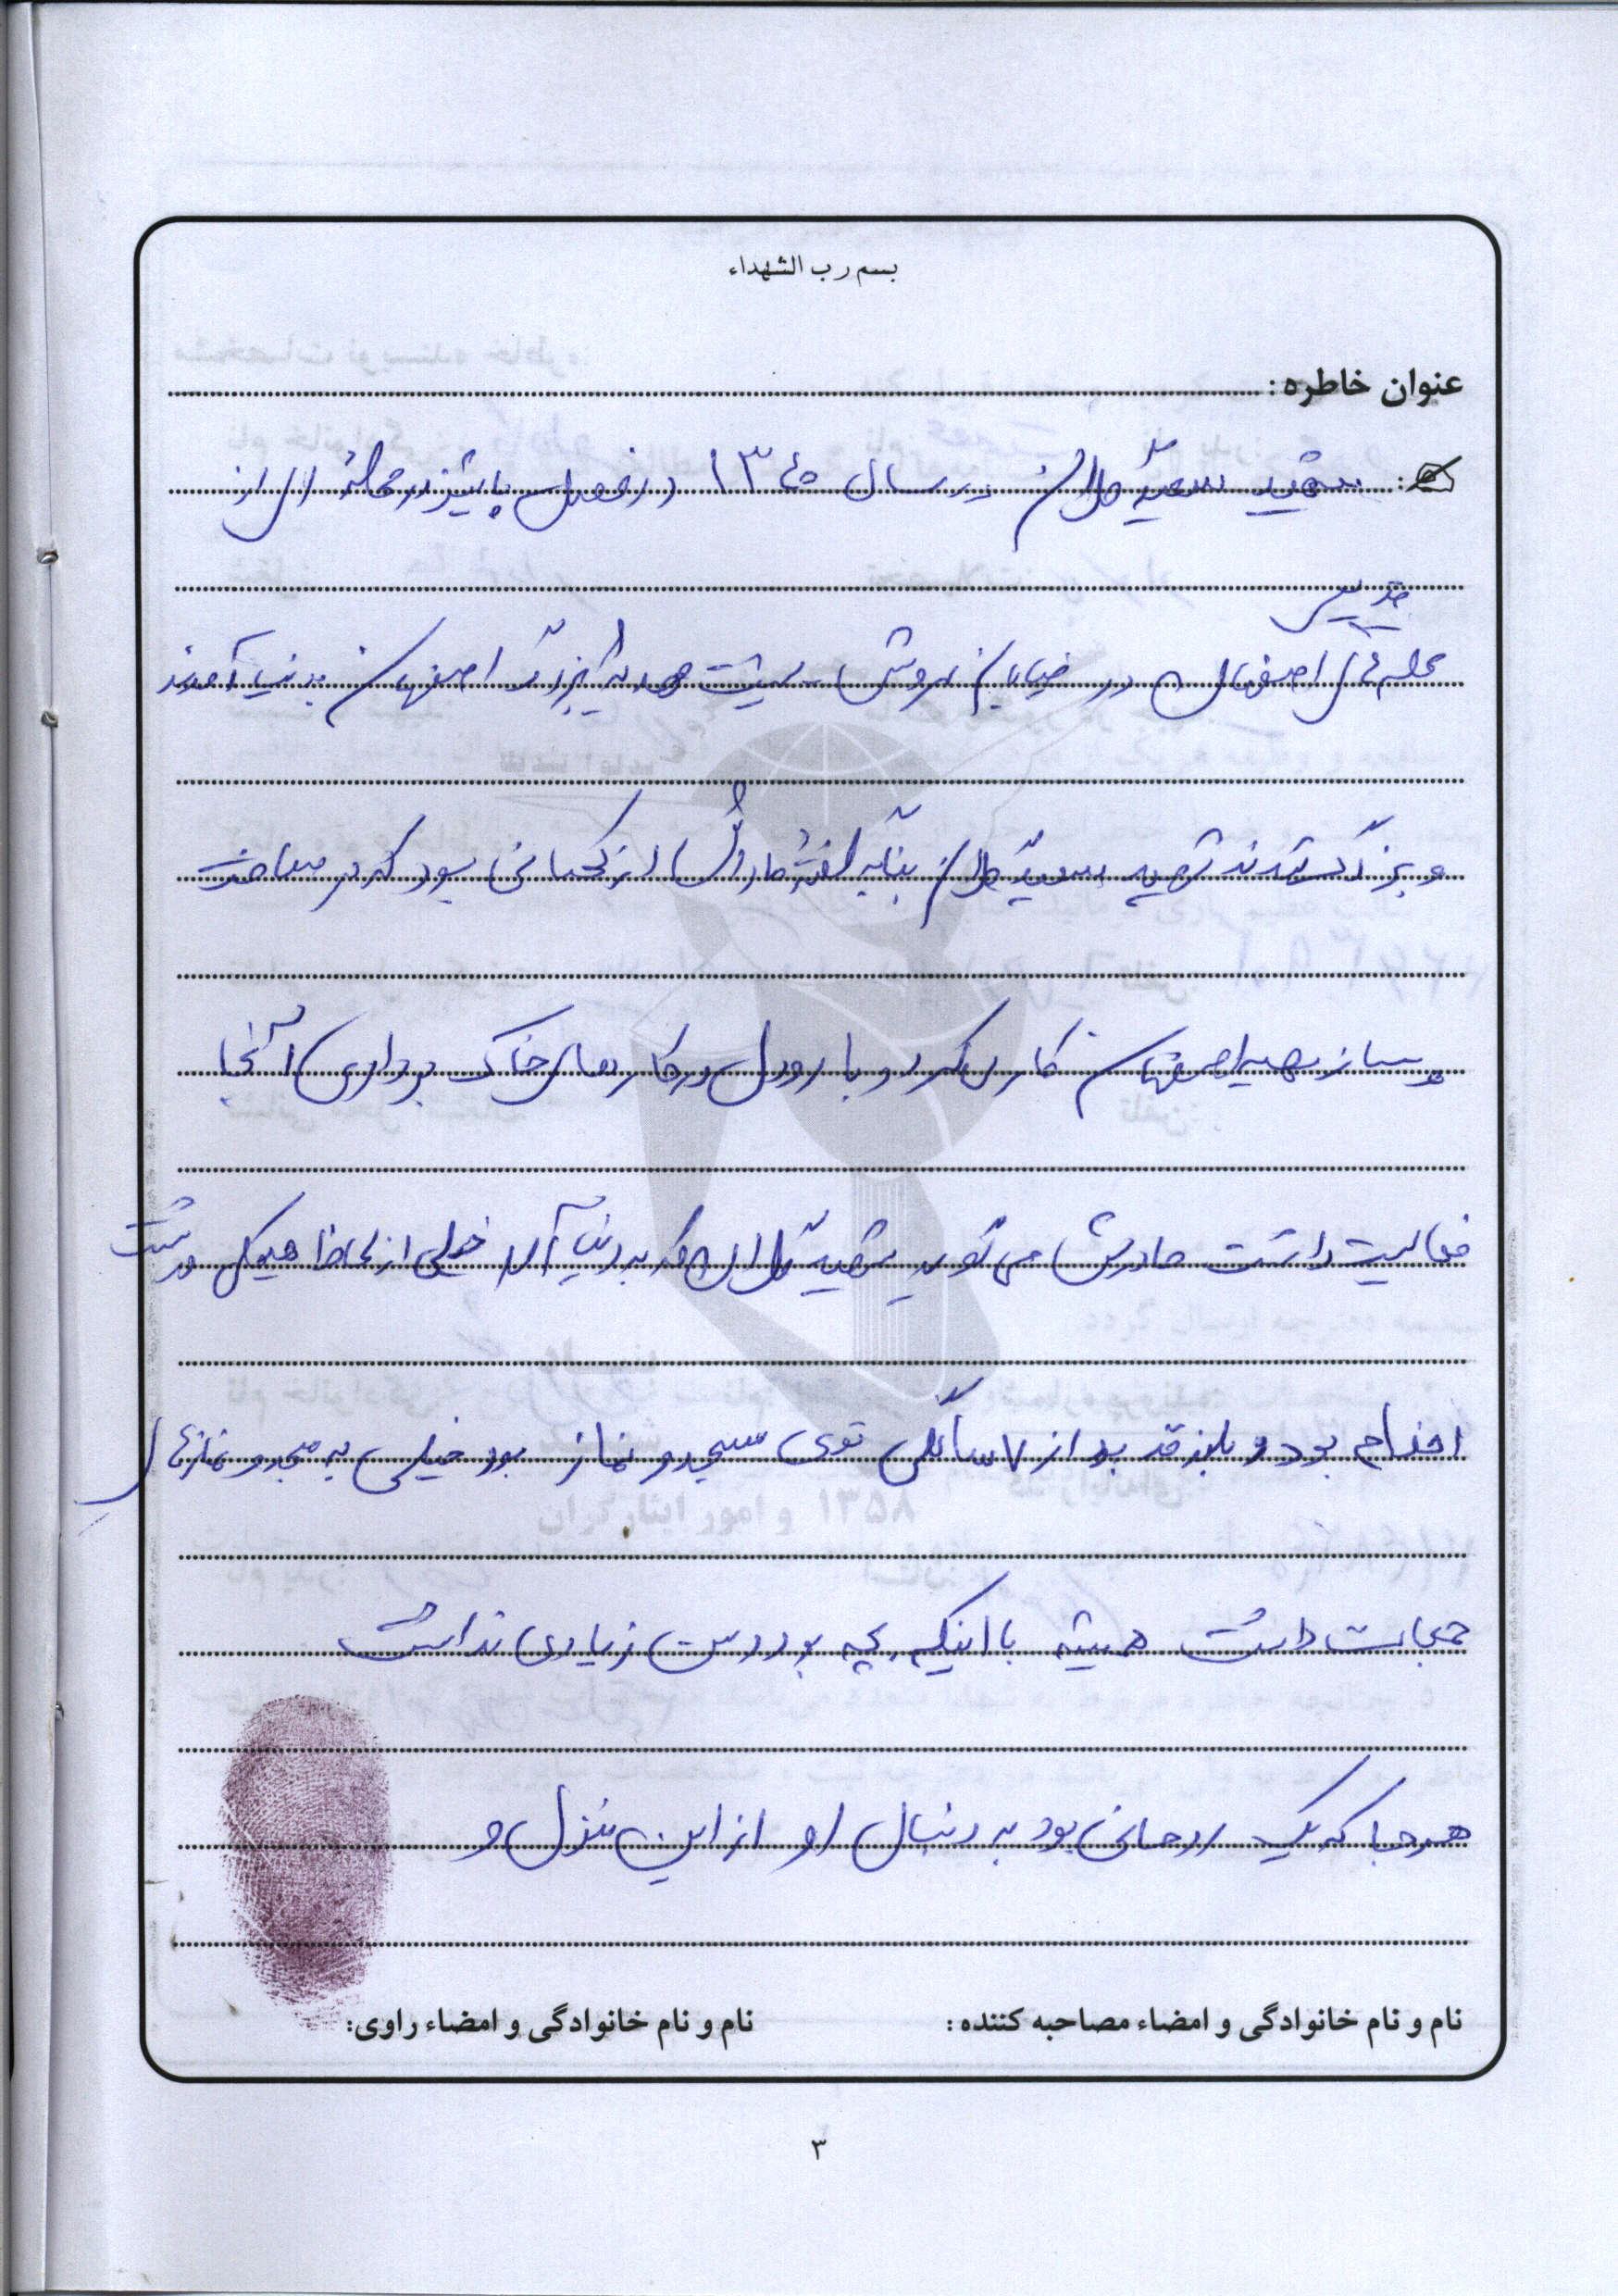 بسم رب الشهداء
عنوان خاطره:
شهید سعید در سال ۱۳۴۵ در فصل پاییز در محله ای از
قدیمی
محله های اصفهان در خیابان سروش پشت اصفهان بدنیا آمدند
و بزرگ شدند شهید سعید بنا به گفته مادرشان از کسانی بود که در ساخت
و ساز اصفهان کار می کرد و با در کارهای خاک برداری آنجا
فعالیت داشت مادرش می گوید شهید که بدنیا آمد خیلی از لحاظ هیکل درشت
اندام بود و بلند قد بود از ۷ سالگی توی مسجد و نماز بود خیلی به مسجد و نمازهای
جماعت داشت همیشه با اینکه بچه بود و سن زیادی نداشت
هر جا که یک روحانی بود به دنبال او از این منزل و
نام و نام خانوادگی و امضاء مصاحبه کننده: نام و نام خانوادگی و امضاء راوی:
۳